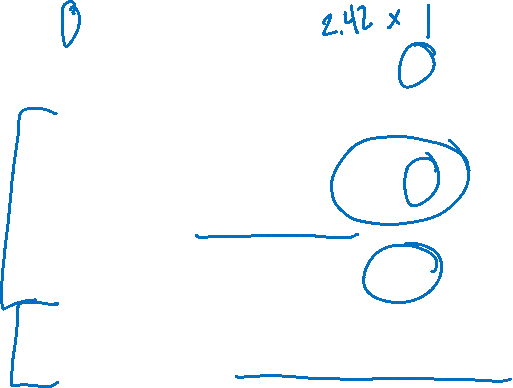 0 2.42 x 1